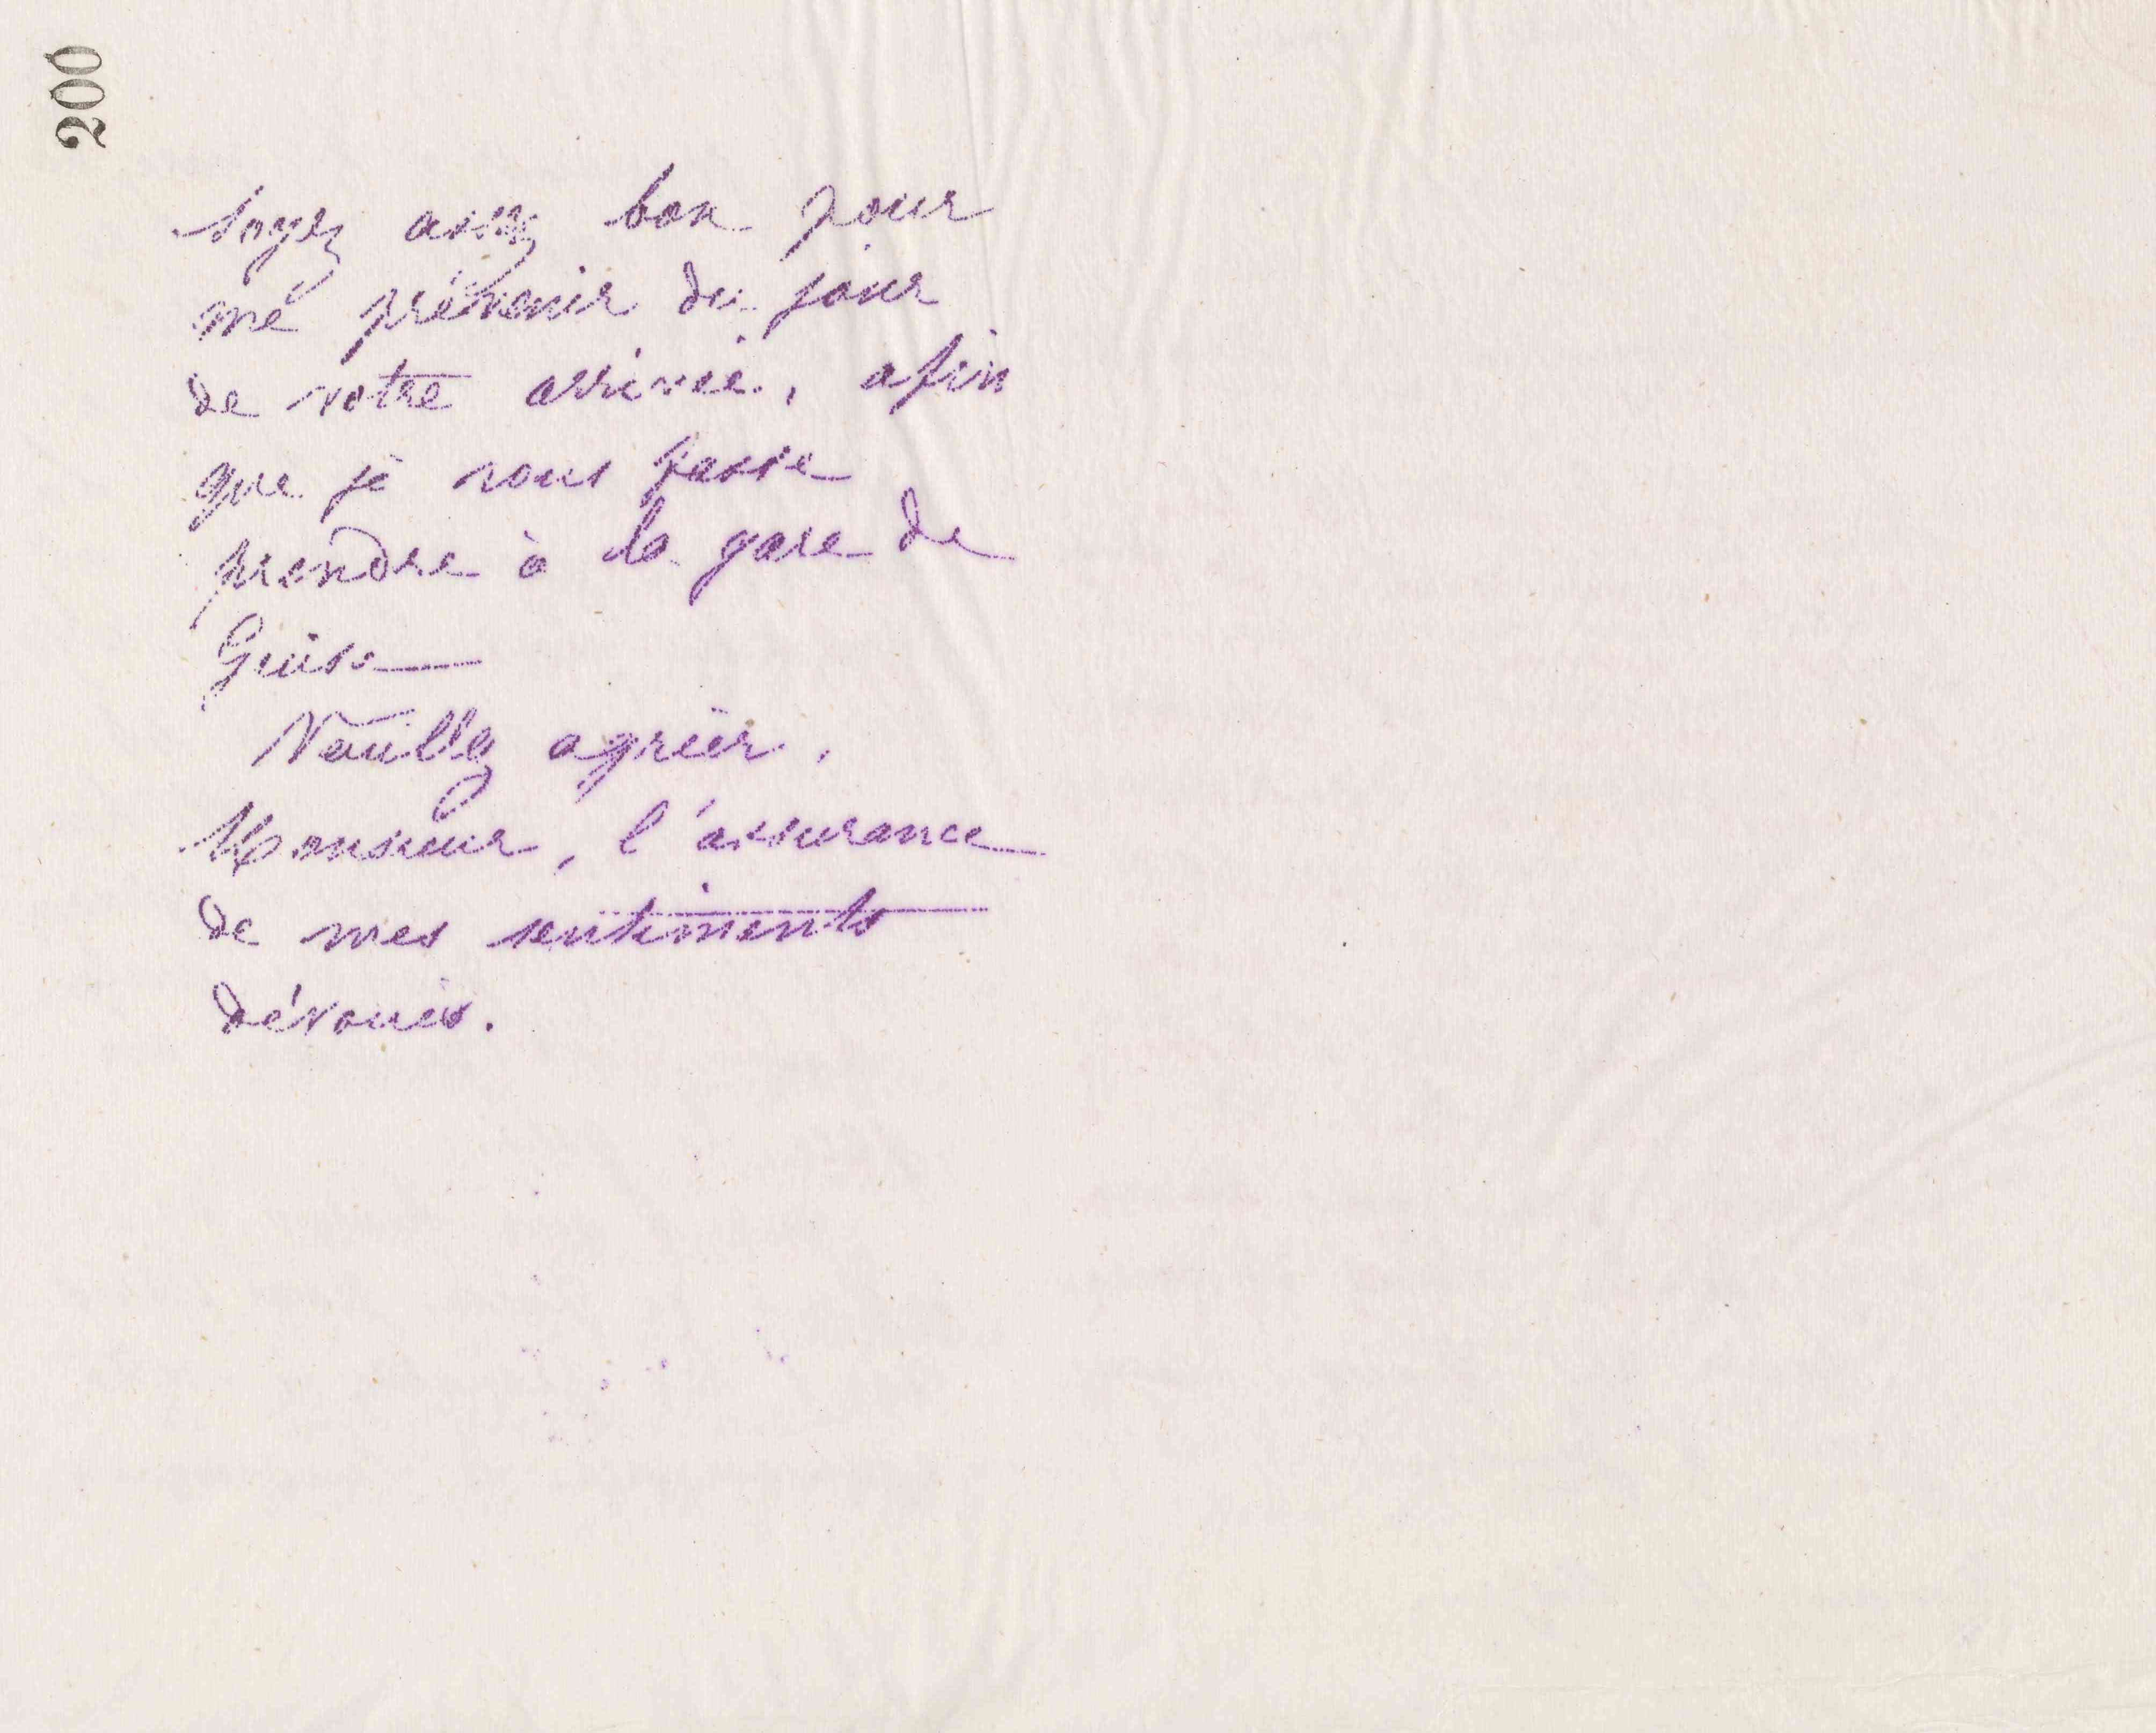 200
soyez assez bon pour
me prévenir du jour
de votre arrivée, afin
que je vous fasse
prendre à la gare de
Guise
Veuillez agréer,
Monsieur, l'assurance
de mes sentiments
dévoués.